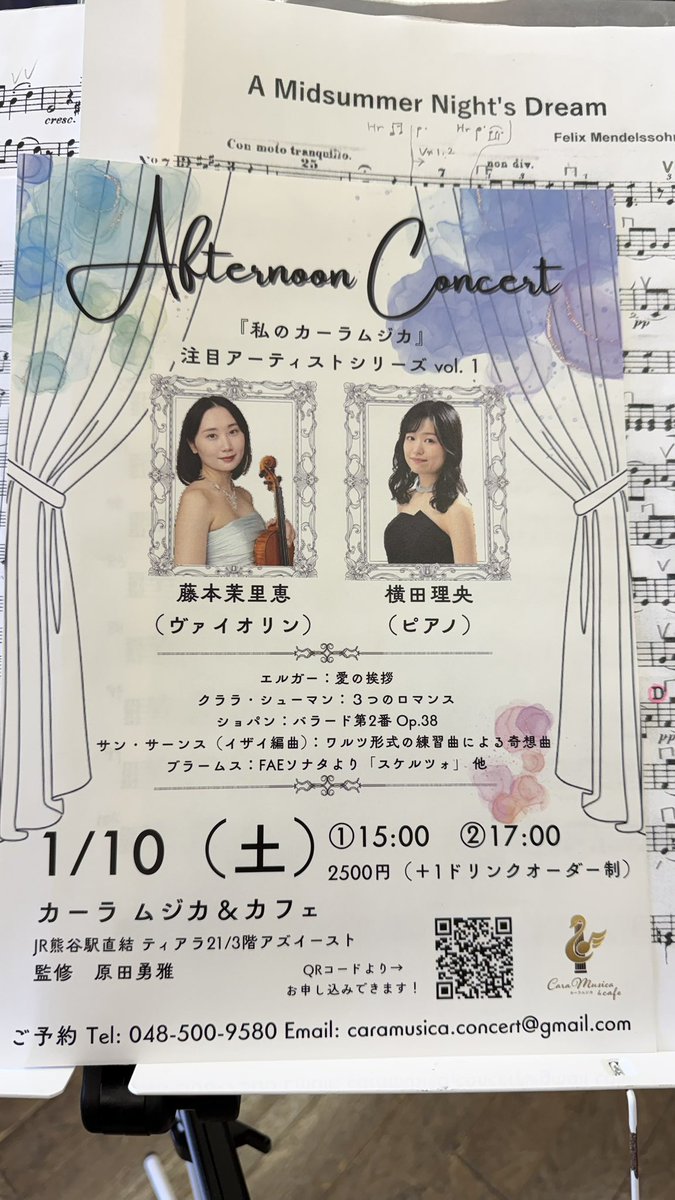 A Midsummer Night's Dream
Felix Mendelssohn
cresc.
Con moto tranquillo.
Hr
p.
Hr
p.
Vn 1, 2
non div.
No 7
25
7
3
3
pp
Afternoon Concert
『私のカーラムジカ』
注目アーティストシリーズ vol. 1
藤本茉里恵
(ヴァイオリン)
横田理央
(ピアノ)
エルガー:愛の挨拶
クララ・シューマン:3つのロマンス
ショパン:バラード第2番 Op.38
サン・サーンス(イザイ編曲):ワルツ形式の練習曲による奇想曲
ブラームス:FAEソナタより「スケルツォ」他
D
1/10(土)
①15:00 ②17:00
2500円(+1ドリンクオーダー制)
カーラ ムジカ&カフェ
JR熊谷駅直結 ティアラ21/3階アズイースト
監修 原田勇雅
QRコードより→
お申し込みできます!
Cara Musica
カーラムジカ
&cafe
ご予約 Tel: 048-500-9580 Email: caramusica.concert@gmail.com